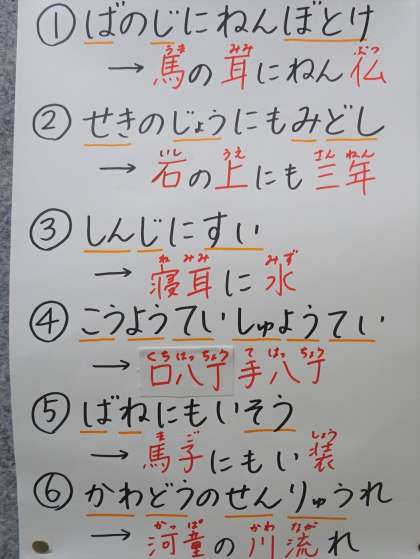 ① ばのじにねんぼとけ
うま みみ ぶつ
→ 馬の耳にねん仏
② せきのじょうにもみどし
いし うえ さん ねん
→ 石の上にも三年
③ しんじにすい
ね みみ みず
→ 寝耳に水
④ こうようていしゅようてい
くち はっ ちょう て はっ ちょう
→ 口八丁手八丁
⑤ ばねにもいそう
ま ご しょう
→ 馬子にもい装
⑥ かわどうのせんりゅうれ
かっ ぱ かわ なが
→ 河童の川流れ